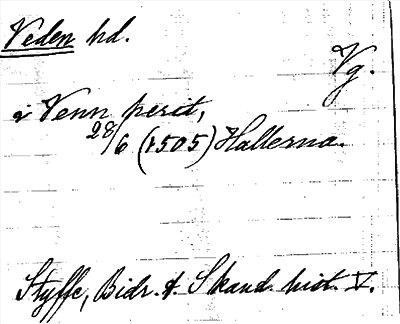 Veden hd.
Vg.
i Venn perit,
28/6 (1505) Hallerna.
Styffe, Bidr. t. Skand. hist. V.